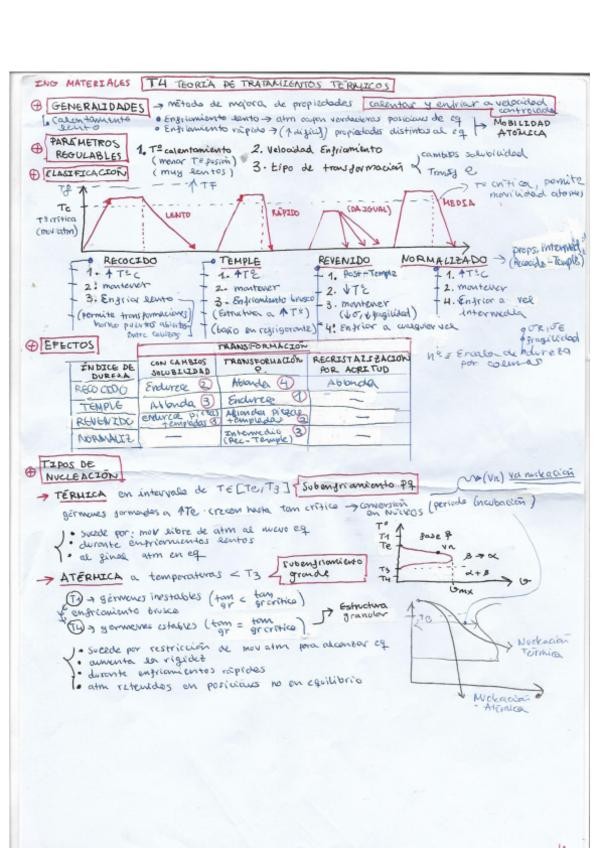 ING MATERIALES T4 TEORÍA DE TRATAMIENTOS TÉRMICOS
GENERALIDADES → método de mejora de propiedades calentar y enfriar a velocidad controlada
calentamiento lento
• Enfriamiento lento → atm ocupan verdaderas posiciones de eq
• Enfriamiento rápido → (↑ difícil) propiedades distintas al eq
MOBILIDAD ATÓMICA
PARÁMETROS REGULABLES
1. Tª calentamiento (menor Tª fusión) (muy lentos)
2. Velocidad Enfriamiento
3. tipo de transformación
cambios solubilidad
Transf
CLASIFICACIÓN
↑ TF
Tf
Tc
Tª crítica (mov atm)
LENTO
RÁPIDO
(DA IGUAL)
MEDIA
Tª crítica, permite movilidad atomos
RECOCIDO
1. ↑ Tª C
2. mantener
3. Enfriar lento
(permite transformaciones)
TEMPLE
1. ↑ Tª C
2. mantener
3. Enfriamiento brusco
(Estructura a ↑ Tª)
(baño en refrigerante)
REVENIDO
1. Post-Temple
2. ↓ Tª C
3. mantener
4. Enfriar a cualquier vel
NORMALIZADO
1. ↑ Tª C
2. mantener
4. Enfriar a vel intermedia
props. intermed
(Recocido-Temple)
EFECTOS
TRANSFORMACIÓN
ÍNDICE DE DUREZA
CON CAMBIOS SOLUBILIDAD
TRANSFORMACIÓN
RECRISTALIZACIÓN POR ACRITUD
RECOCIDO Endurece 2 Ablanda 4 Ablanda
TEMPLE Ablanda 3 Endurece 1 —
REVENIDO endurece piezas templadas Ablandas piezas templadas 2 —
NORMALIZ — Intermedio 3 (Rec-Temple) —
fragilidad
nºs = Escala de dureza por columnas
TIPOS DE NUCLEACIÓN
(Vn) va nucleación
→ TÉRMICA en intervalo de T∈[Te, T3] Subenfriamiento pq
gérmenes formados a ↑Te crecen hasta tam crítico → conversión en NÚCLEOS (periodo incubación)
• Sucede por: mov libre de atm al nuevo eq
• durante enfriamientos lentos
• al final atm en eq
Tª
T1
Te
T3
T4
fase β
vn
β → α
α + β
v
vmx
→ ATÉRMICA a temperaturas < T3 Subenfriamiento grande
T1 → gérmenes inestables (tam gr < tam gr crítico)
enfriamiento brusco
T4 → gérmenes estables (tam gr = tam gr crítico)
Estructura granular
• sucede por restricción de mov atm para alcanzar eq
• aumenta la rigidez
• durante enfriamientos rápidos
• atm retenidos en posiciones no en equilibrio
Nucleación Térmica
Nucleación Atérmica